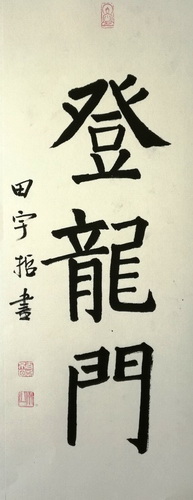 登龍門
田宇哲書